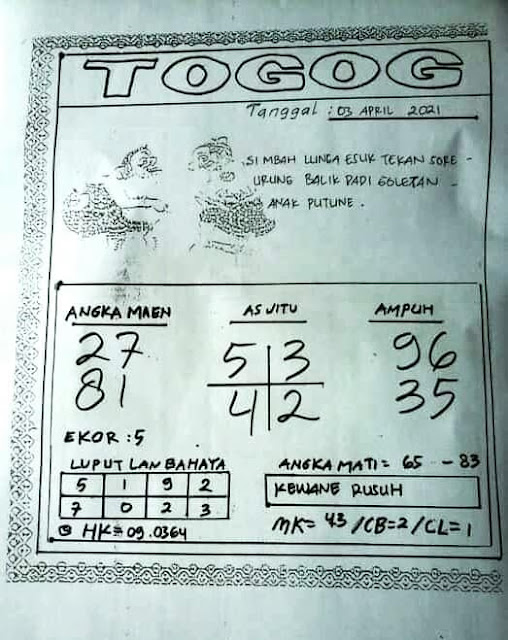 TOGOG
Tanggal : 03 APRIL 2021
SI MBAH LUNGA ESUK TEKAN SORE -
URUNG BALIK DADI GOLETAN -
ANAK PUTUNE .
ANGKA MAEN AS JITU AMPUH
27 5 3 96
81 4 2 35
EKOR : 5
LUPUT LAN BAHAYA ANGKA MATI = 65 - 83
5 1 9 2
7 0 2 3
KEWANE RUSUH
HK = 09.0364 MK = 43 / CB = 2 / CL = 1